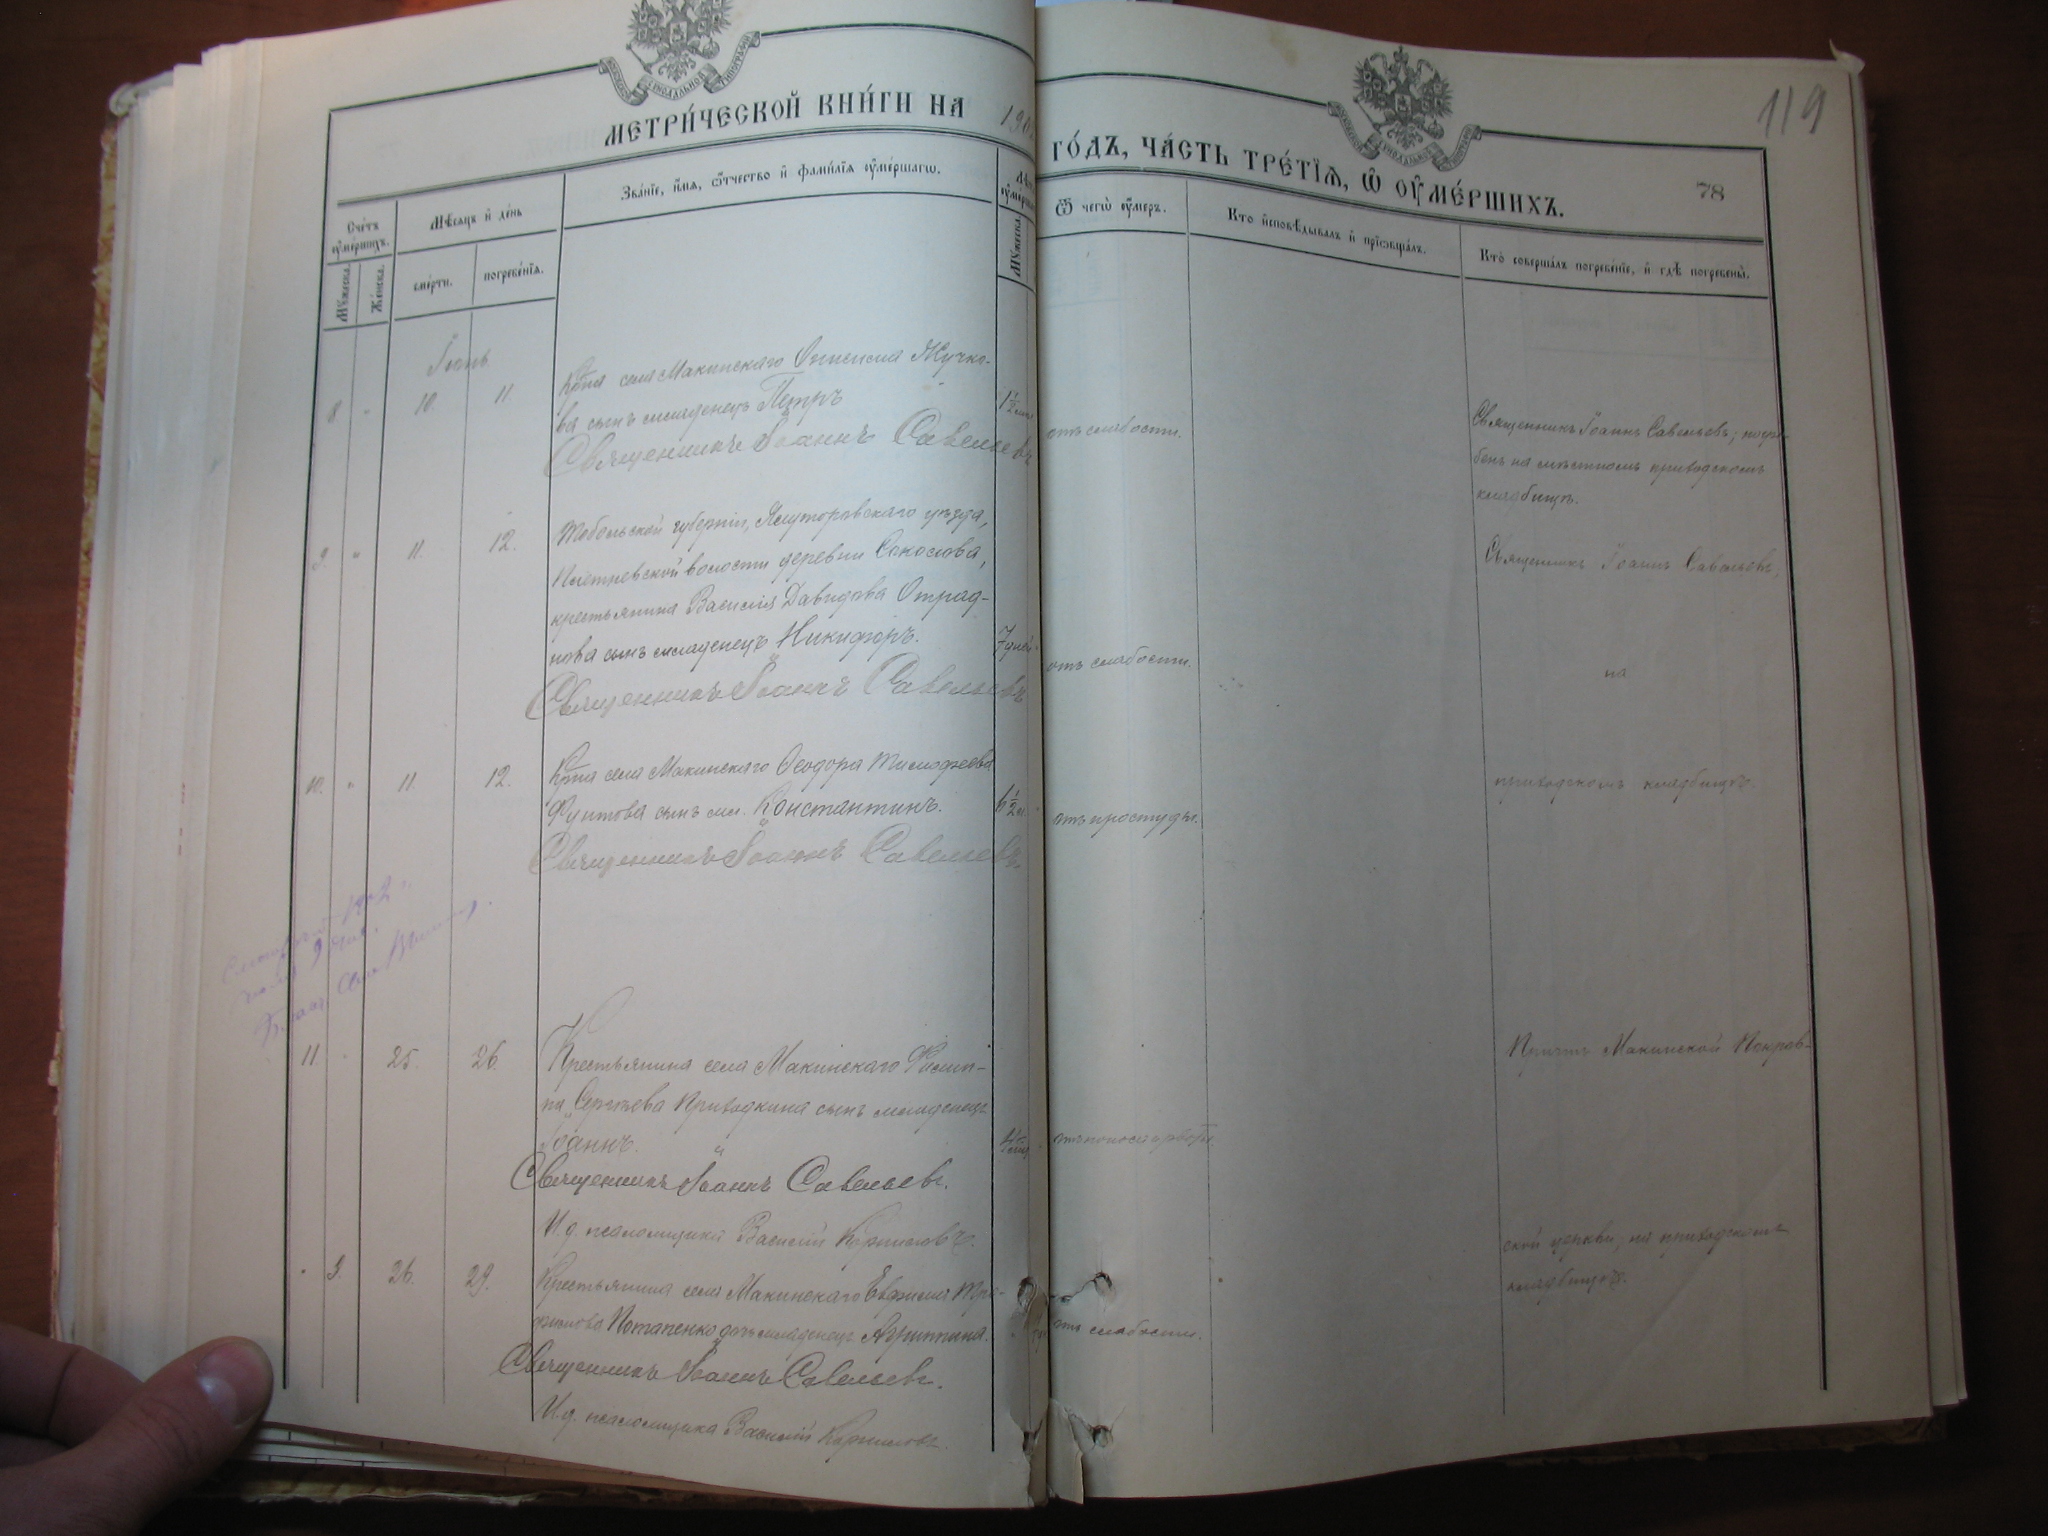 МЕТРИ́ЧЕСКОЙ КНИ́ГИ НА 190
ГО́ДЪ, ЧА́СТЬ ТРЕ́ТІѦ, Ѡ ОУМЕ́РШИХЪ.
119
78
Сче́тъ оуме́ршихъ.
Мꙋжеска.
Же́нска.
Мѣ́сѧцъ и де́нь
сме́рти.
погребе́нїѧ.
Зва́нїе, и́мѧ, ѻ́тчество и фами́лїѧ оуме́ршагѡ.
Мꙋжеска.
Ѿ чегѡ̀ оу́меръ.
Кто̀ и҆сповѣ́дывалъ и҆ прїѡбща́лъ.
Кто̀ соверша́лъ погребе́нїе, и҆ гдѣ̀ погребены̀.
Іюнь
8 " 10. 11
Кр-на села Макинскаго Онисима Жучко-
ва сынъ младенецъ Петръ
Священникъ Іоаннъ Савельевъ
1½
отъ слабости.
Священникъ Іоаннъ Савельевъ; погре-
бенъ на мѣстномъ приходскомъ
кладбищѣ.
9. " 11. 12.
Тобольской губерніи, Ялуторовскаго уѣзда,
волости деревни Соколова,
крестьянина Василія Давидова Отрад-
нова сынъ младенецъ Никифоръ.
Священникъ Іоаннъ Савельевъ
7 дней
отъ слабости.
Священникъ Іоаннъ Савельевъ,
на
приходскомъ кладбищѣ.
10. " 11. 12.
Кр-на села Макинскаго Ѳеодора Тимофеева
сынъ мл. Константинъ.
Священникъ Іоаннъ Савельевъ
6½
отъ простуды.
11. 25. 26.
Крестьянина села Макинскаго Филип-
па Сергѣева Приходкина сынъ младенецъ
Іоаннъ.
Священникъ Іоаннъ Савельевъ.
И.д. псаломщика Василій Корниловъ.
Причтъ Макинской Покров-
ской церкви, на приходскомъ
кладбищѣ.
3. 26. 29.
Крестьянина села Макинскаго Евфимія Тро-
фимова Потапенко дочь младенецъ Агриппина.
Священникъ Іоаннъ Савельевъ.
И.д. псаломщика Василій Корниловъ.
отъ слабости.